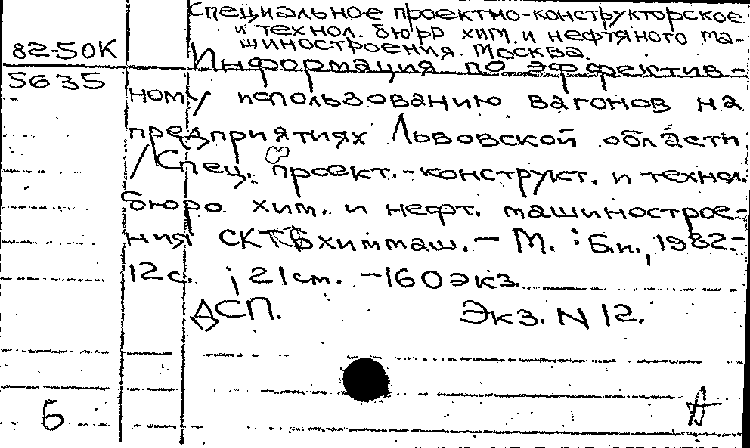 Специальное проектно-конструкторское
и технол. бюро хим. и нефтяного ма-
шиностроения. Москва.
82-50К
Информация по эффектив-
5635
ному использованию вагонов на
предприятиях Львовской области
/Спец. проект.-конструкт. и технол.
бюро хим. и нефт. машинострое-
ния СКТБхиммаш. - М. : Б.и., 1982-
12с. ; 21см. - 160экз.
ДСП. Экз. N 12.
Б Д